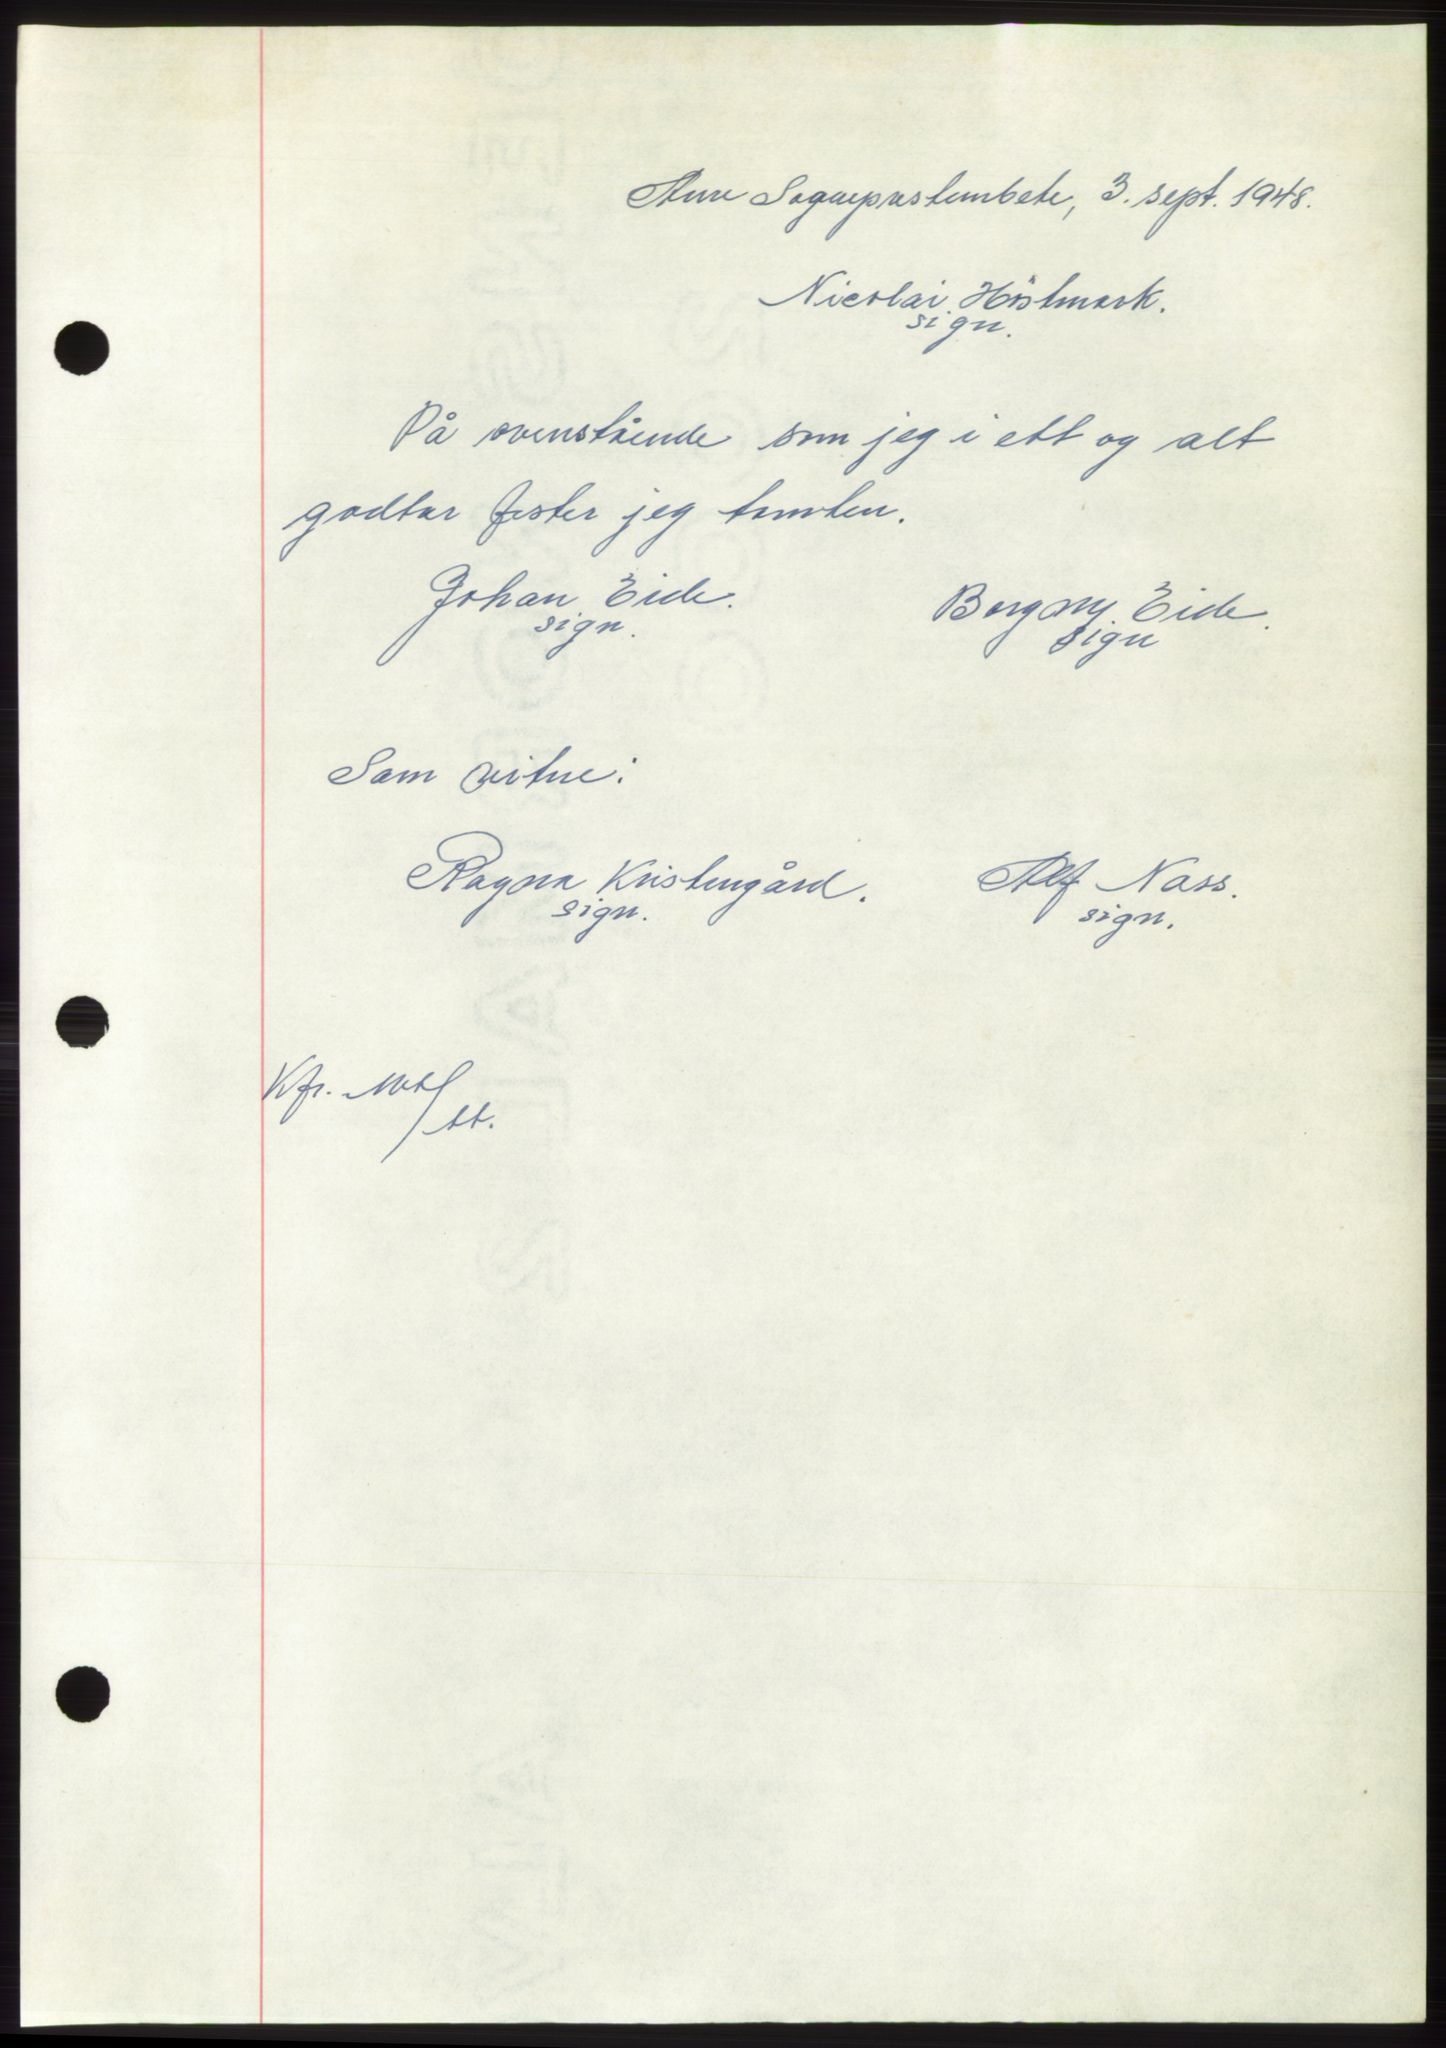 Aure Sogneprestembete, 3. sept. 1948.
Nicolai Höstmark.
sign.
På ovenstående som jeg i ett og alt
godtar fester jeg tomten.
Johan Eide. Borgny Eide.
sign. sign
Som vitne:
Ragna Kristengård. Alf Nass.
sign. sign.
Kfr.